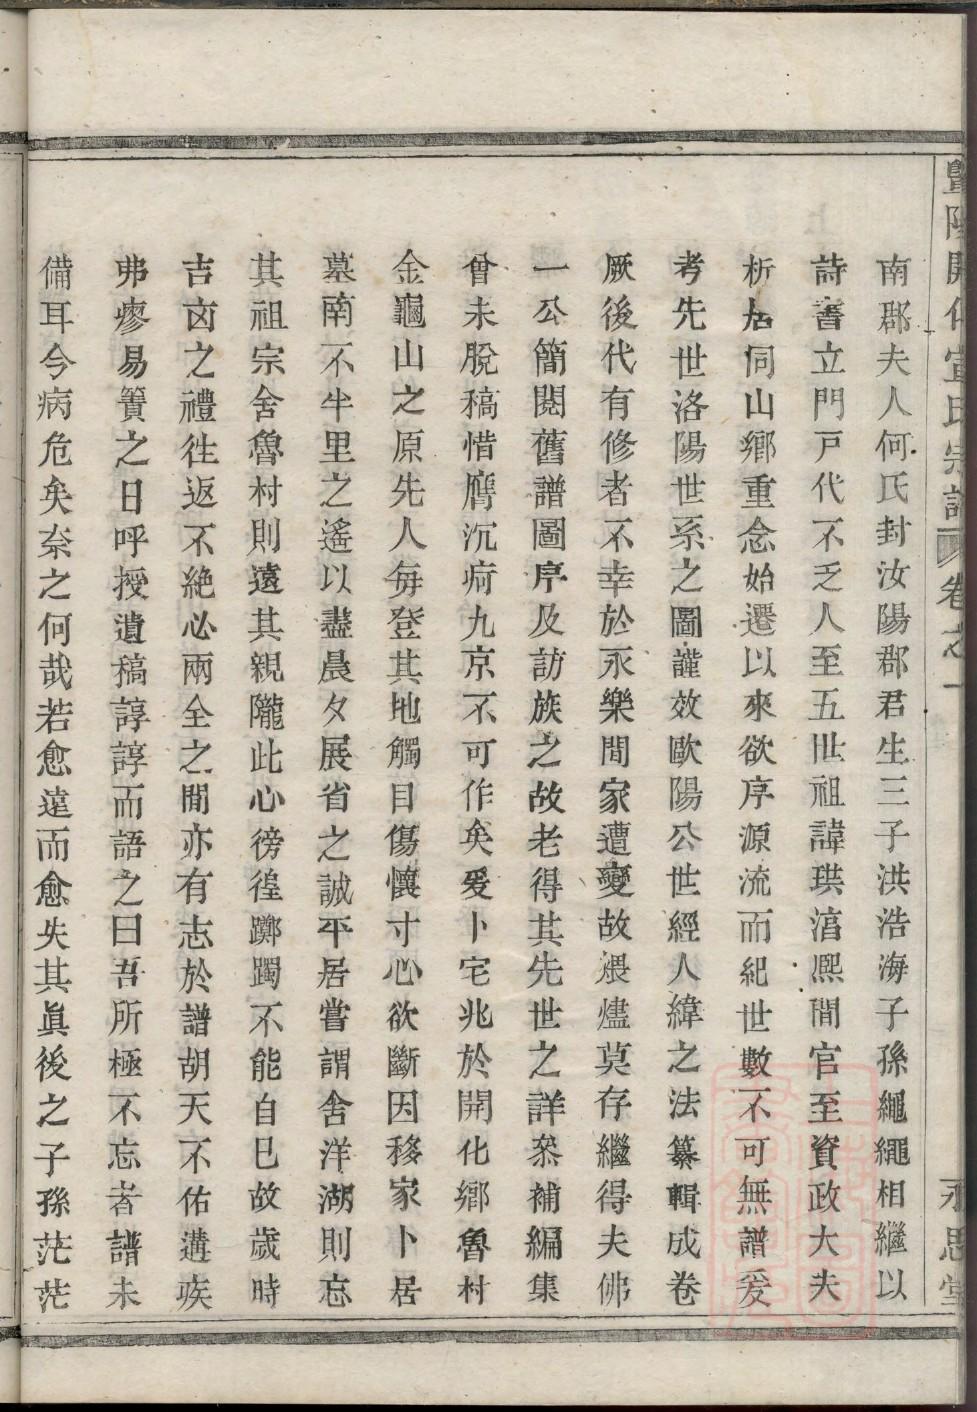 暨陽開化宣氏宗譜 卷之一 永思堂
南郡夫人何氏封汝陽郡君生三子洪浩海子孫繩繩相繼以
詩書立門戸代不乏人至五世祖諱珙淳熈間官至資政大夫
析居同山鄉重念始遷以來欲序源流而紀世數不可無譜爰
考先世洛陽世系之圖謹效歐陽公世經人緯之法纂輯成卷
厥後代有修者不幸於永樂間家遭變故煨燼莫存繼得夫佛
一公簡閱舊譜圖序及訪族之故老得其先世之詳叅補編集
曾未脫稿惜膺沉疴九京不可作矣爰卜宅兆於開化鄉魯村
金龜山之原先人每登其地觸目傷懷寸心欲斷因移家卜居
墓南不半里之遙以盡晨夕展省之誠平居嘗謂舍洋湖則忘
其祖宗舍魯村則遠其親隴此心徬徨躑躅不能自已故歲時
吉凶之禮徃返不絶必兩全之間亦有志於譜胡天不佑遘疾
弗瘳易簀之日呼授遺稿諄諄而語之曰吾所極不忘者譜未
備耳今病危矣奈之何哉若愈遠而愈失其眞後之子孫茫茫